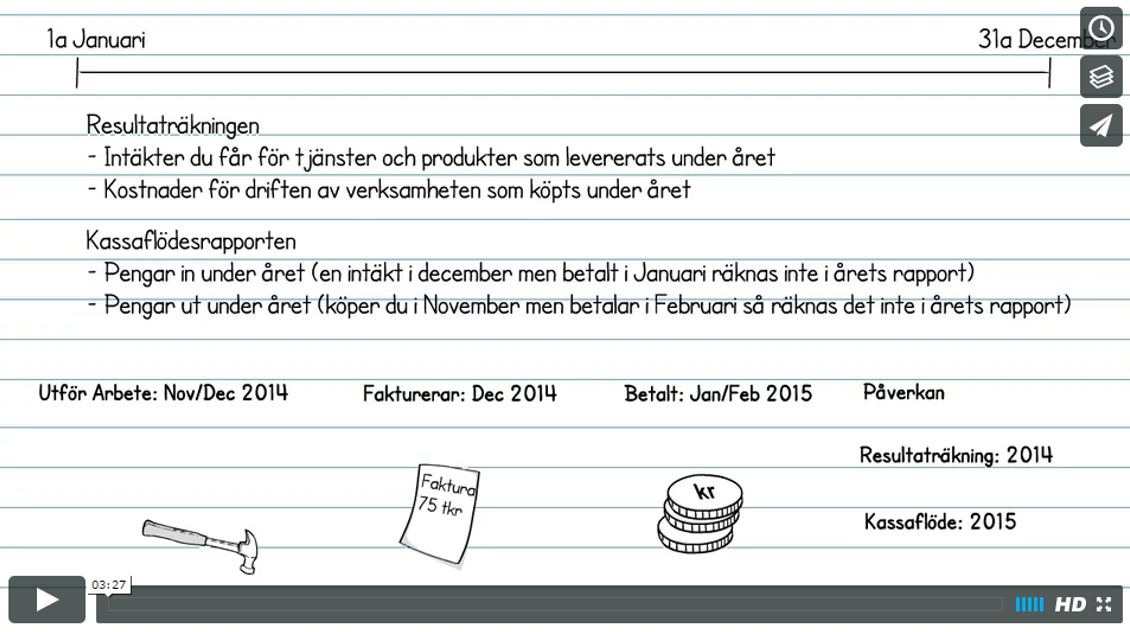 1a Januari
31a December
Resultaträkningen
- Intäkter du får för tjänster och produkter som levererats under året
- Kostnader för driften av verksamheten som köpts under året
Kassaflödesrapporten
- Pengar in under året (en intäkt i december men betalt i Januari räknas inte i årets rapport)
- Pengar ut under året (köper du i November men betalar i Februari så räknas det inte i årets rapport)
Utför Arbete: Nov/Dec 2014
Fakturerar: Dec 2014
Betalt: Jan/Feb 2015
Påverkan
Resultaträkning: 2014
Faktura
75 tkr
kr
Kassaflöde: 2015
03:27
HD